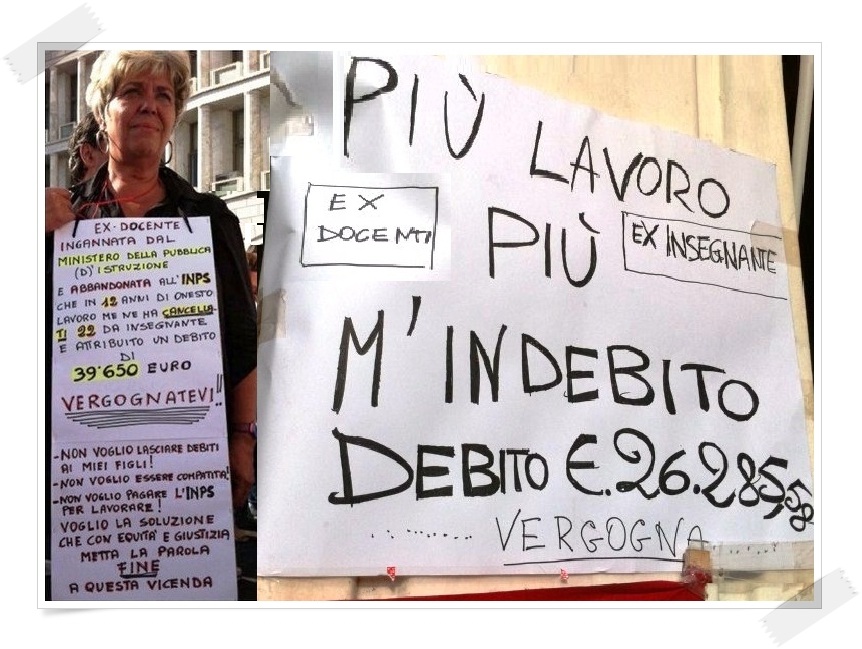 EX-DOCENTE
INGANNATA DAL
MINISTERO DELLA PUBBLICA
(D)'ISTRUZIONE
E ABBANDONATA ALL'INPS
CHE IN 12 ANNI DI ONESTO
LAVORO ME NE HA CANCELLA
TI 22 DA INSEGNANTE
E ATTRIBUITO UN DEBITO
DI
39'650 EURO
VERGOGNATEVI!!
-NON VOGLIO LASCIARE DEBITI
AI MIEI FIGLI!
-NON VOGLIO ESSERE COMPATITA!
-NON VOGLIO PAGARE L'INPS
PER LAVORARE!
VOGLIO LA SOLUZIONE
CHE CON EQUITA' E GIUSTIZIA
METTA LA PAROLA
FINE
A QUESTA VICENDA
PIÙ LAVORO
EX
DOCENTI
PIÙ
EX INSEGNANTE
M'INDEBITO
DEBITO €.26.285,58
......... VERGOGNA ......